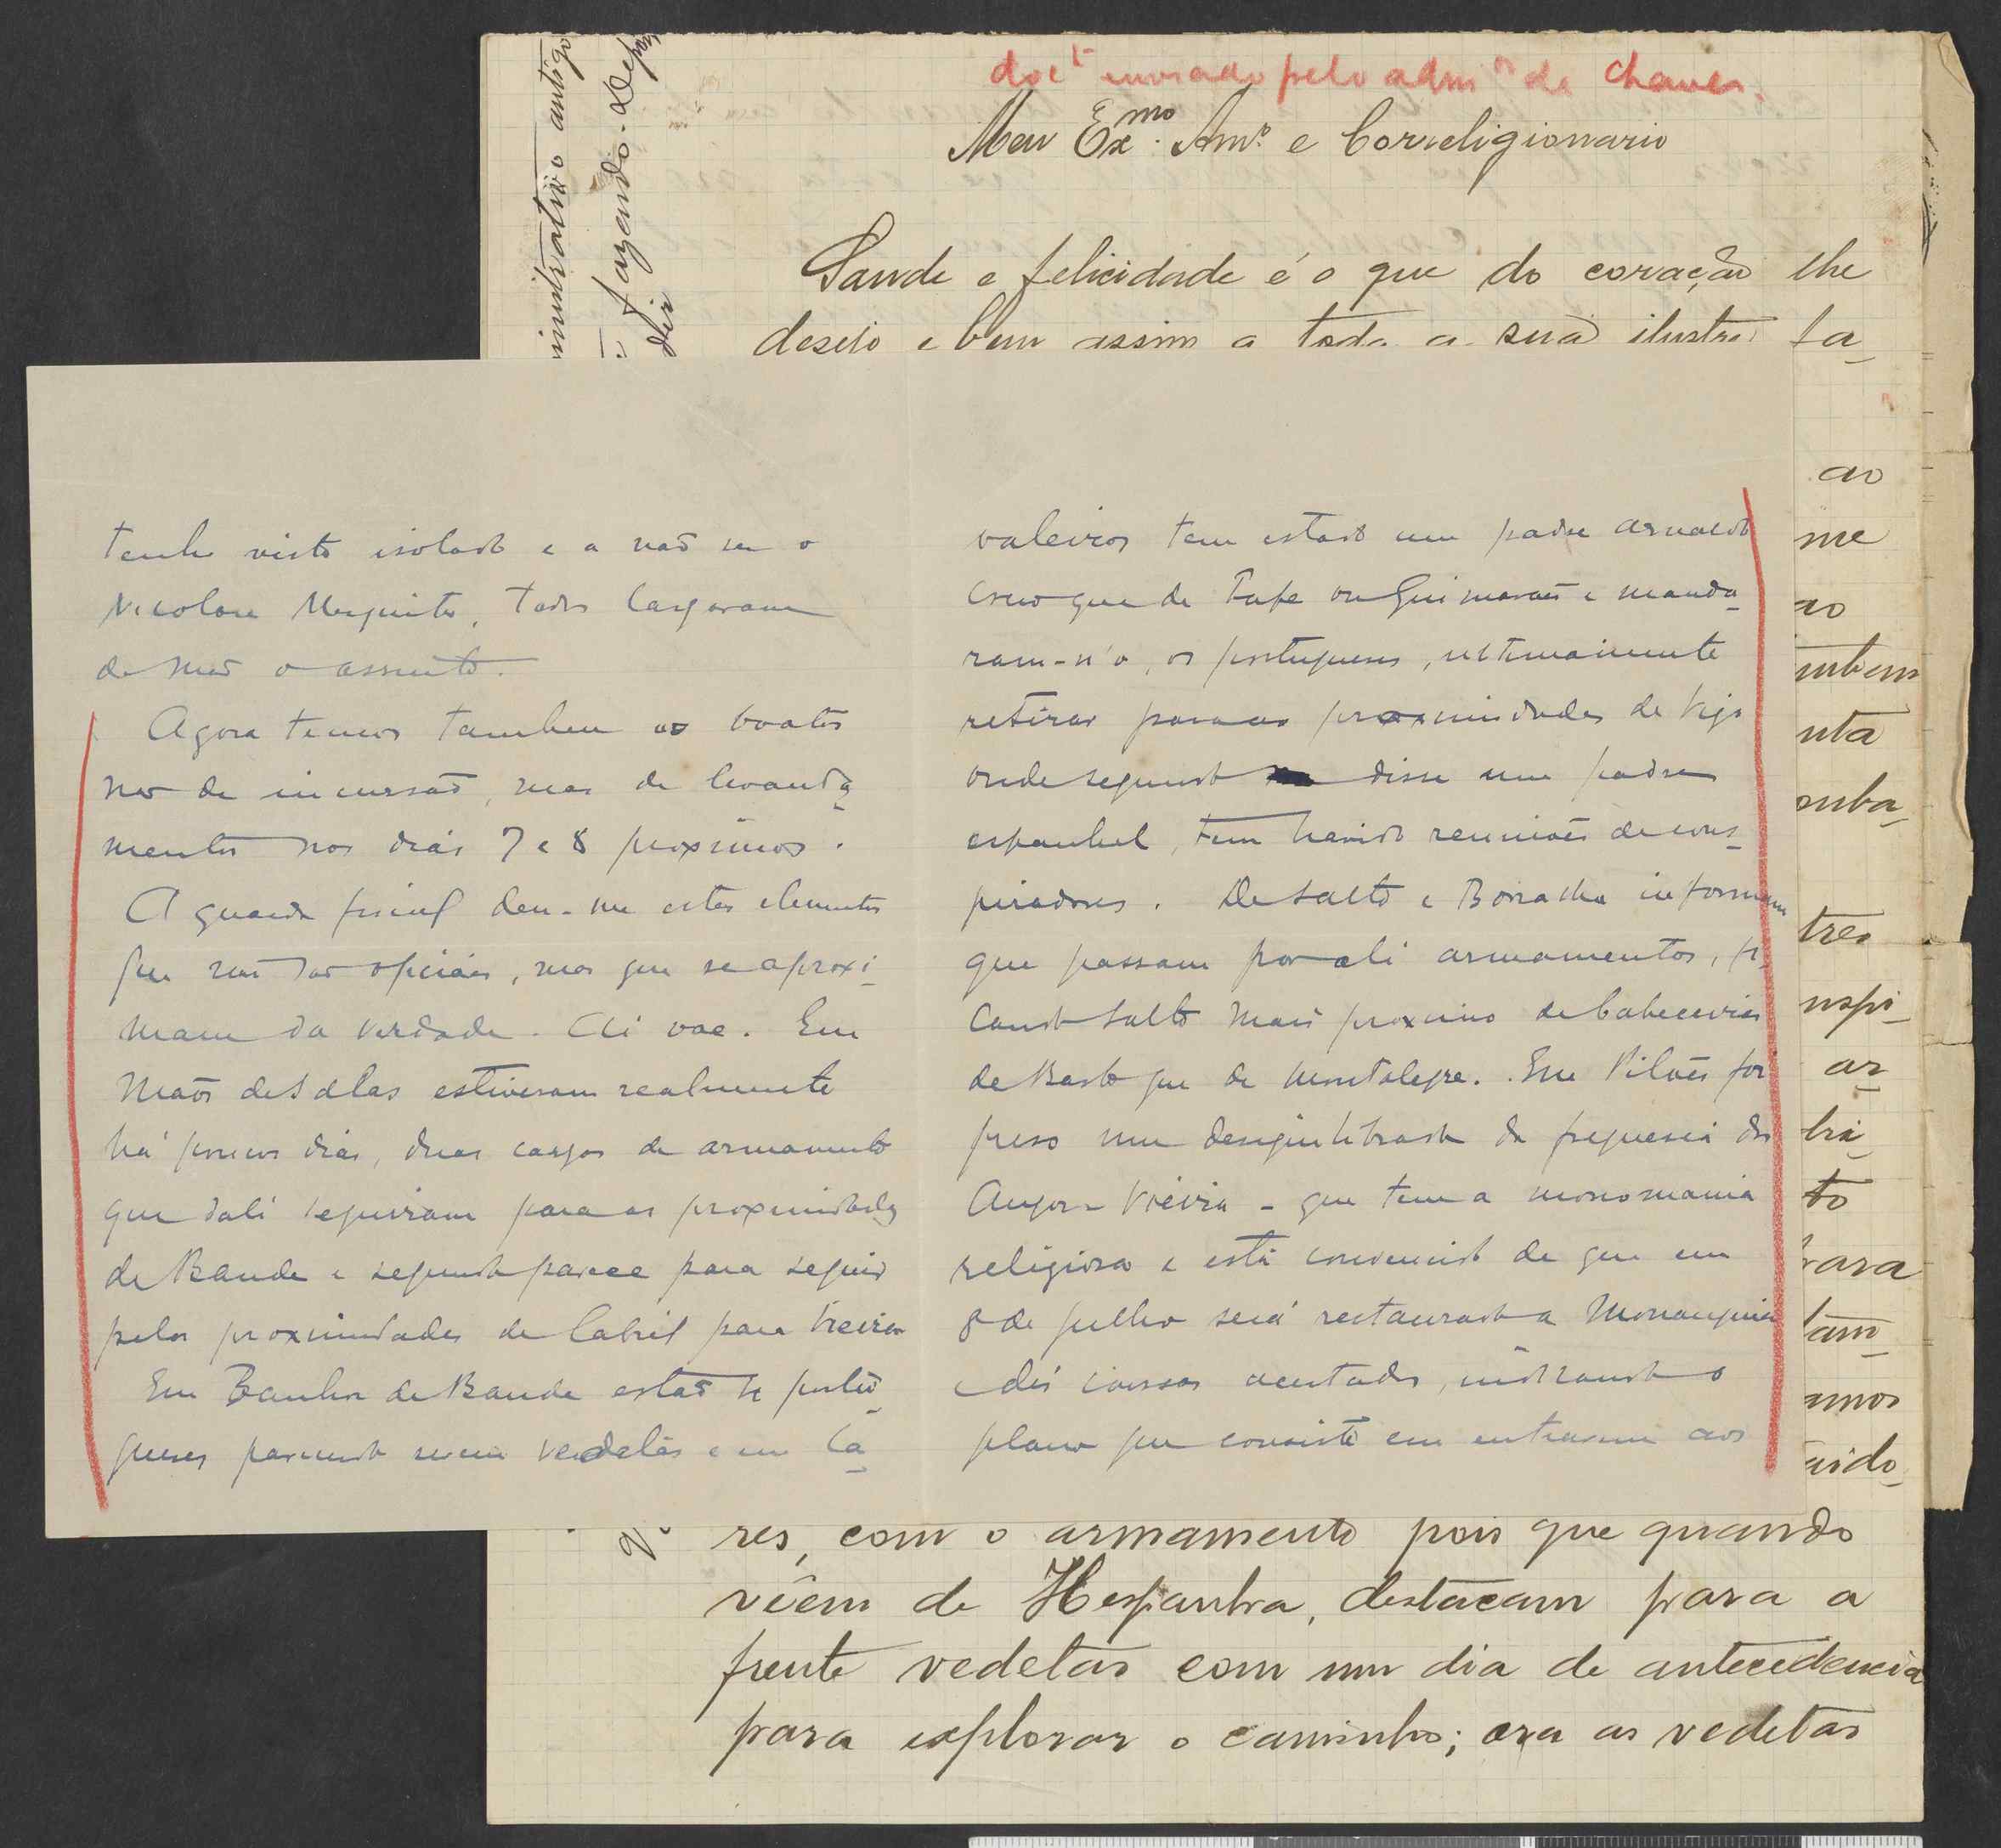 doct enviado pelo admor de Chaves.
Meu Exmo. Amo. e Correligionario
Saude e felicidade é o que do coração lhe
desejo e bem assim a toda a sua ilustre fa-
ministrativo antigo
fazendo. depois
dir
tenho visto isolado e a não ser o
Nicolau Mesquita, todos largaram
de mão o assunto.
Agora temos tambem os boatos
não de incursão, mas de levanta-
mentos nos dias 7 e 8 proximos.
A guarda fiscal deu-me estes elementos
que não são oficiaes, mas que se aproxi-
mam da verdade. Ai vae. Em
Maos de Salas estiveram realmente
há poucos dias, duas cargas de armamento
que dali seguiram para as proximidades
de Bande e segundo parece para seguir
pelas proximidades de Cabril para Vieira
Em Banhos de Bande estão 12 portu-
gueses parecendo serem vedetas e em Ca-
valeiros tem estado um padre Arnaldo
creio que de Fafe ou Guimarães e manda-
ram-n'o, os portugueses, ultimamente
retirar para as proximidades de Vigo
onde segundo disse um padre
espanhol, tem havido reuniões de cons-
piradores. De Salto e Borralha informam
que passam por ali armamentos, fi-
cando Salto mais proximo de Cabeceiras
de Basto que de Montalegre. Em Pilões foi
preso um desiquilibrado da freguesia dos
Anjos - Vieira - que tem a monomania
religiosa e está convencido de que em
8 de julho será restaurada a Monarquia
e diz coisas acertadas, indicando o
plano que consiste em entrarem aos
ao
me
ao
mbem
nta
nha-
tres
nspi-
ar-
to
rara
tam-
amos
uido-
res, com o armamento pois que quando
vêem de Hespanha, destacam para a
frente vedetas com um dia de antecedencia
para explorar o caminho; ora as vedetas